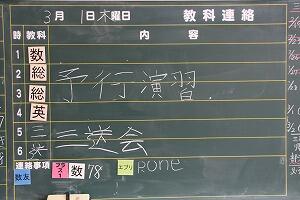 3月 1日木曜日 教科連絡
時 教科 内容
1 数
2 総 予行演習
3 総
4 英
5 三 三送会
6 送
連絡事項 プラス1 数 78 エブリ none
数友